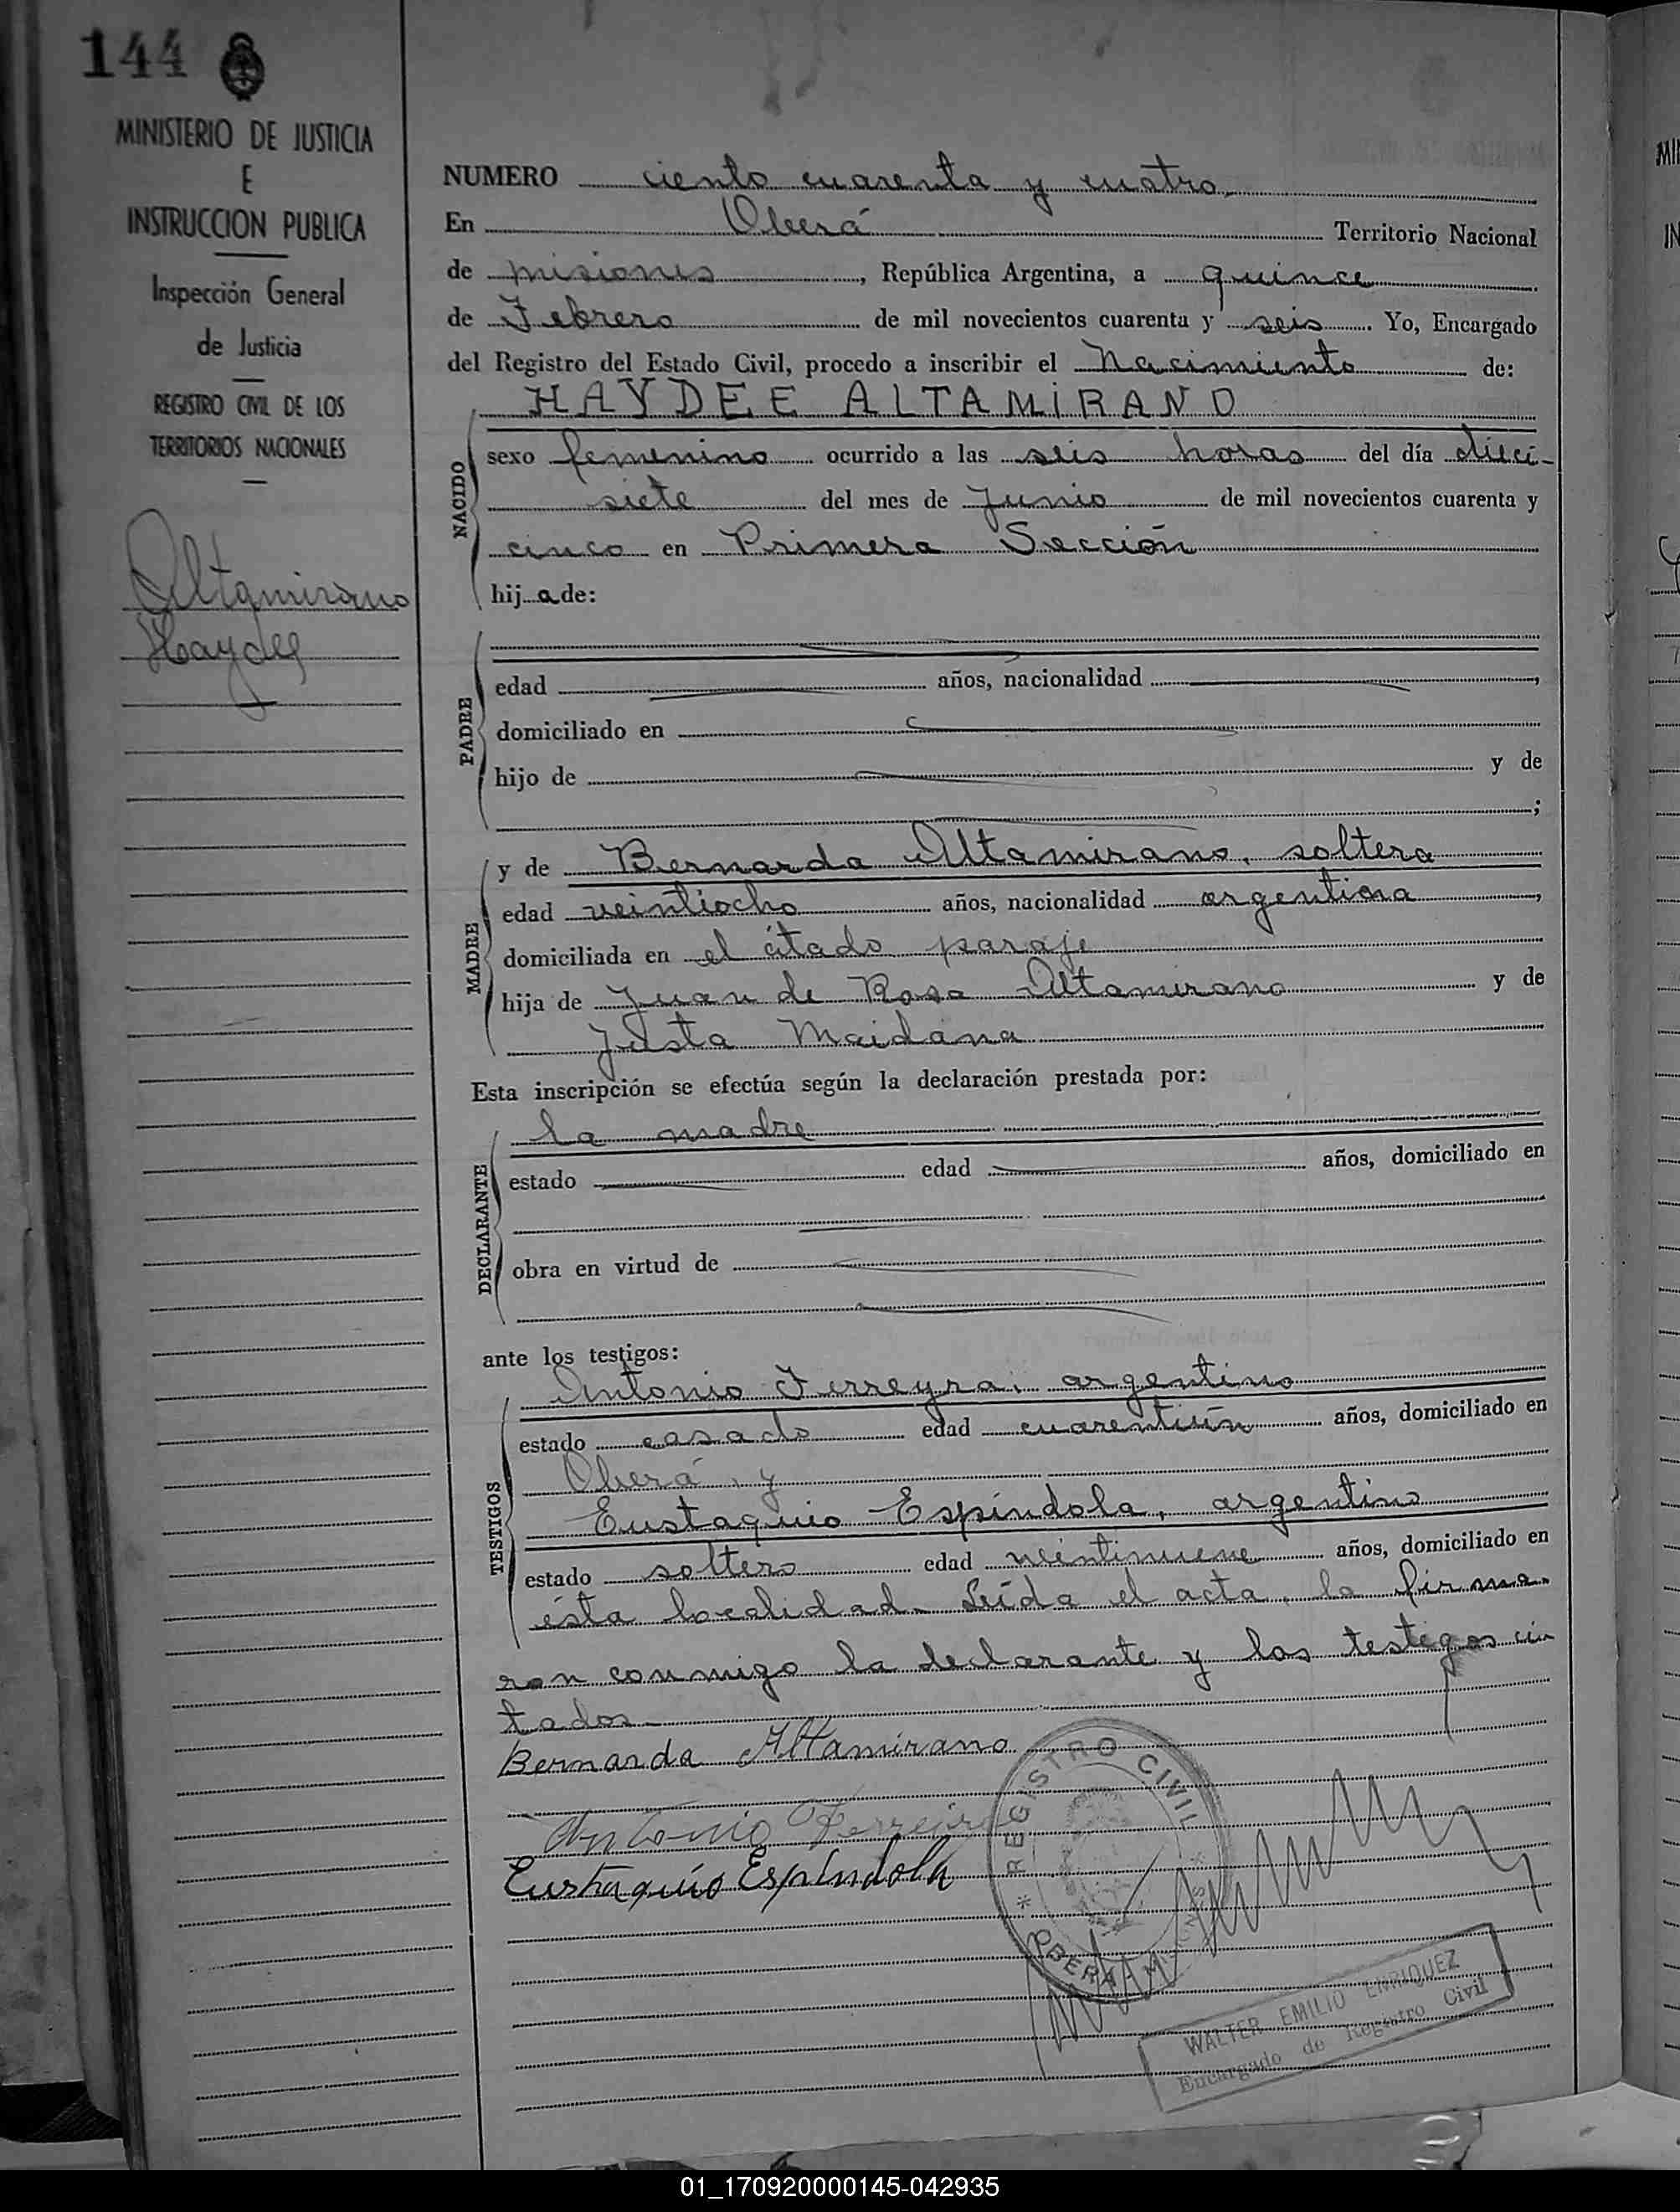 144
MINISTERIO DE JUSTICIA
E
INSTRUCCION PUBLICA
Inspección General
de Justicia
REGISTRO CIVIL DE LOS
TERRITORIOS NACIONALES
Altamirano
Haydee
NUMERO ciento cuarenta y cuatro
En Oberá Territorio Nacional
de misiones, República Argentina, a quince
de Febrero de mil novecientos cuarenta y seis. Yo, Encargado
del Registro del Estado Civil, procedo a inscribir el Nacimiento de:
HAYDEE ALTAMIRANO
NACIDO
sexo femenino ocurrido a las seis horas del día dieci-
siete del mes de Junio de mil novecientos cuarenta y
cinco en Primera Sección
hija de:
PADRE
edad años, nacionalidad ,
domiciliado en
hijo de y de
;
MADRE
y de Bernarda Altamirano, soltera
edad veintiocho años, nacionalidad argentina,
domiciliada en el citado paraje
hija de Juan de Rosa Altamirano y de
Justa Maidana
Esta inscripción se efectúa según la declaración prestada por:
DECLARANTE
la madre
estado edad años, domiciliado en
obra en virtud de
ante los testigos:
TESTIGOS
Antonio Ferreyra, argentino
estado casado edad cuarentiún años, domiciliado en
Oberá, y
Eustaquio Espíndola, argentino
estado soltero edad veintinueve años, domiciliado en
ésta localidad. Leída el acta, la firma-
ron conmigo la declarante y los testigos ci-
tados.-
Bernarda Altamirano
Antonio Ferreira
Eustaquio Espíndola
* REGISTRO CIVIL *
OBERA - MISIONES
WALTER EMILIO ENRIQUEZ
Encargado de Registro Civil
01_170920000145-042935